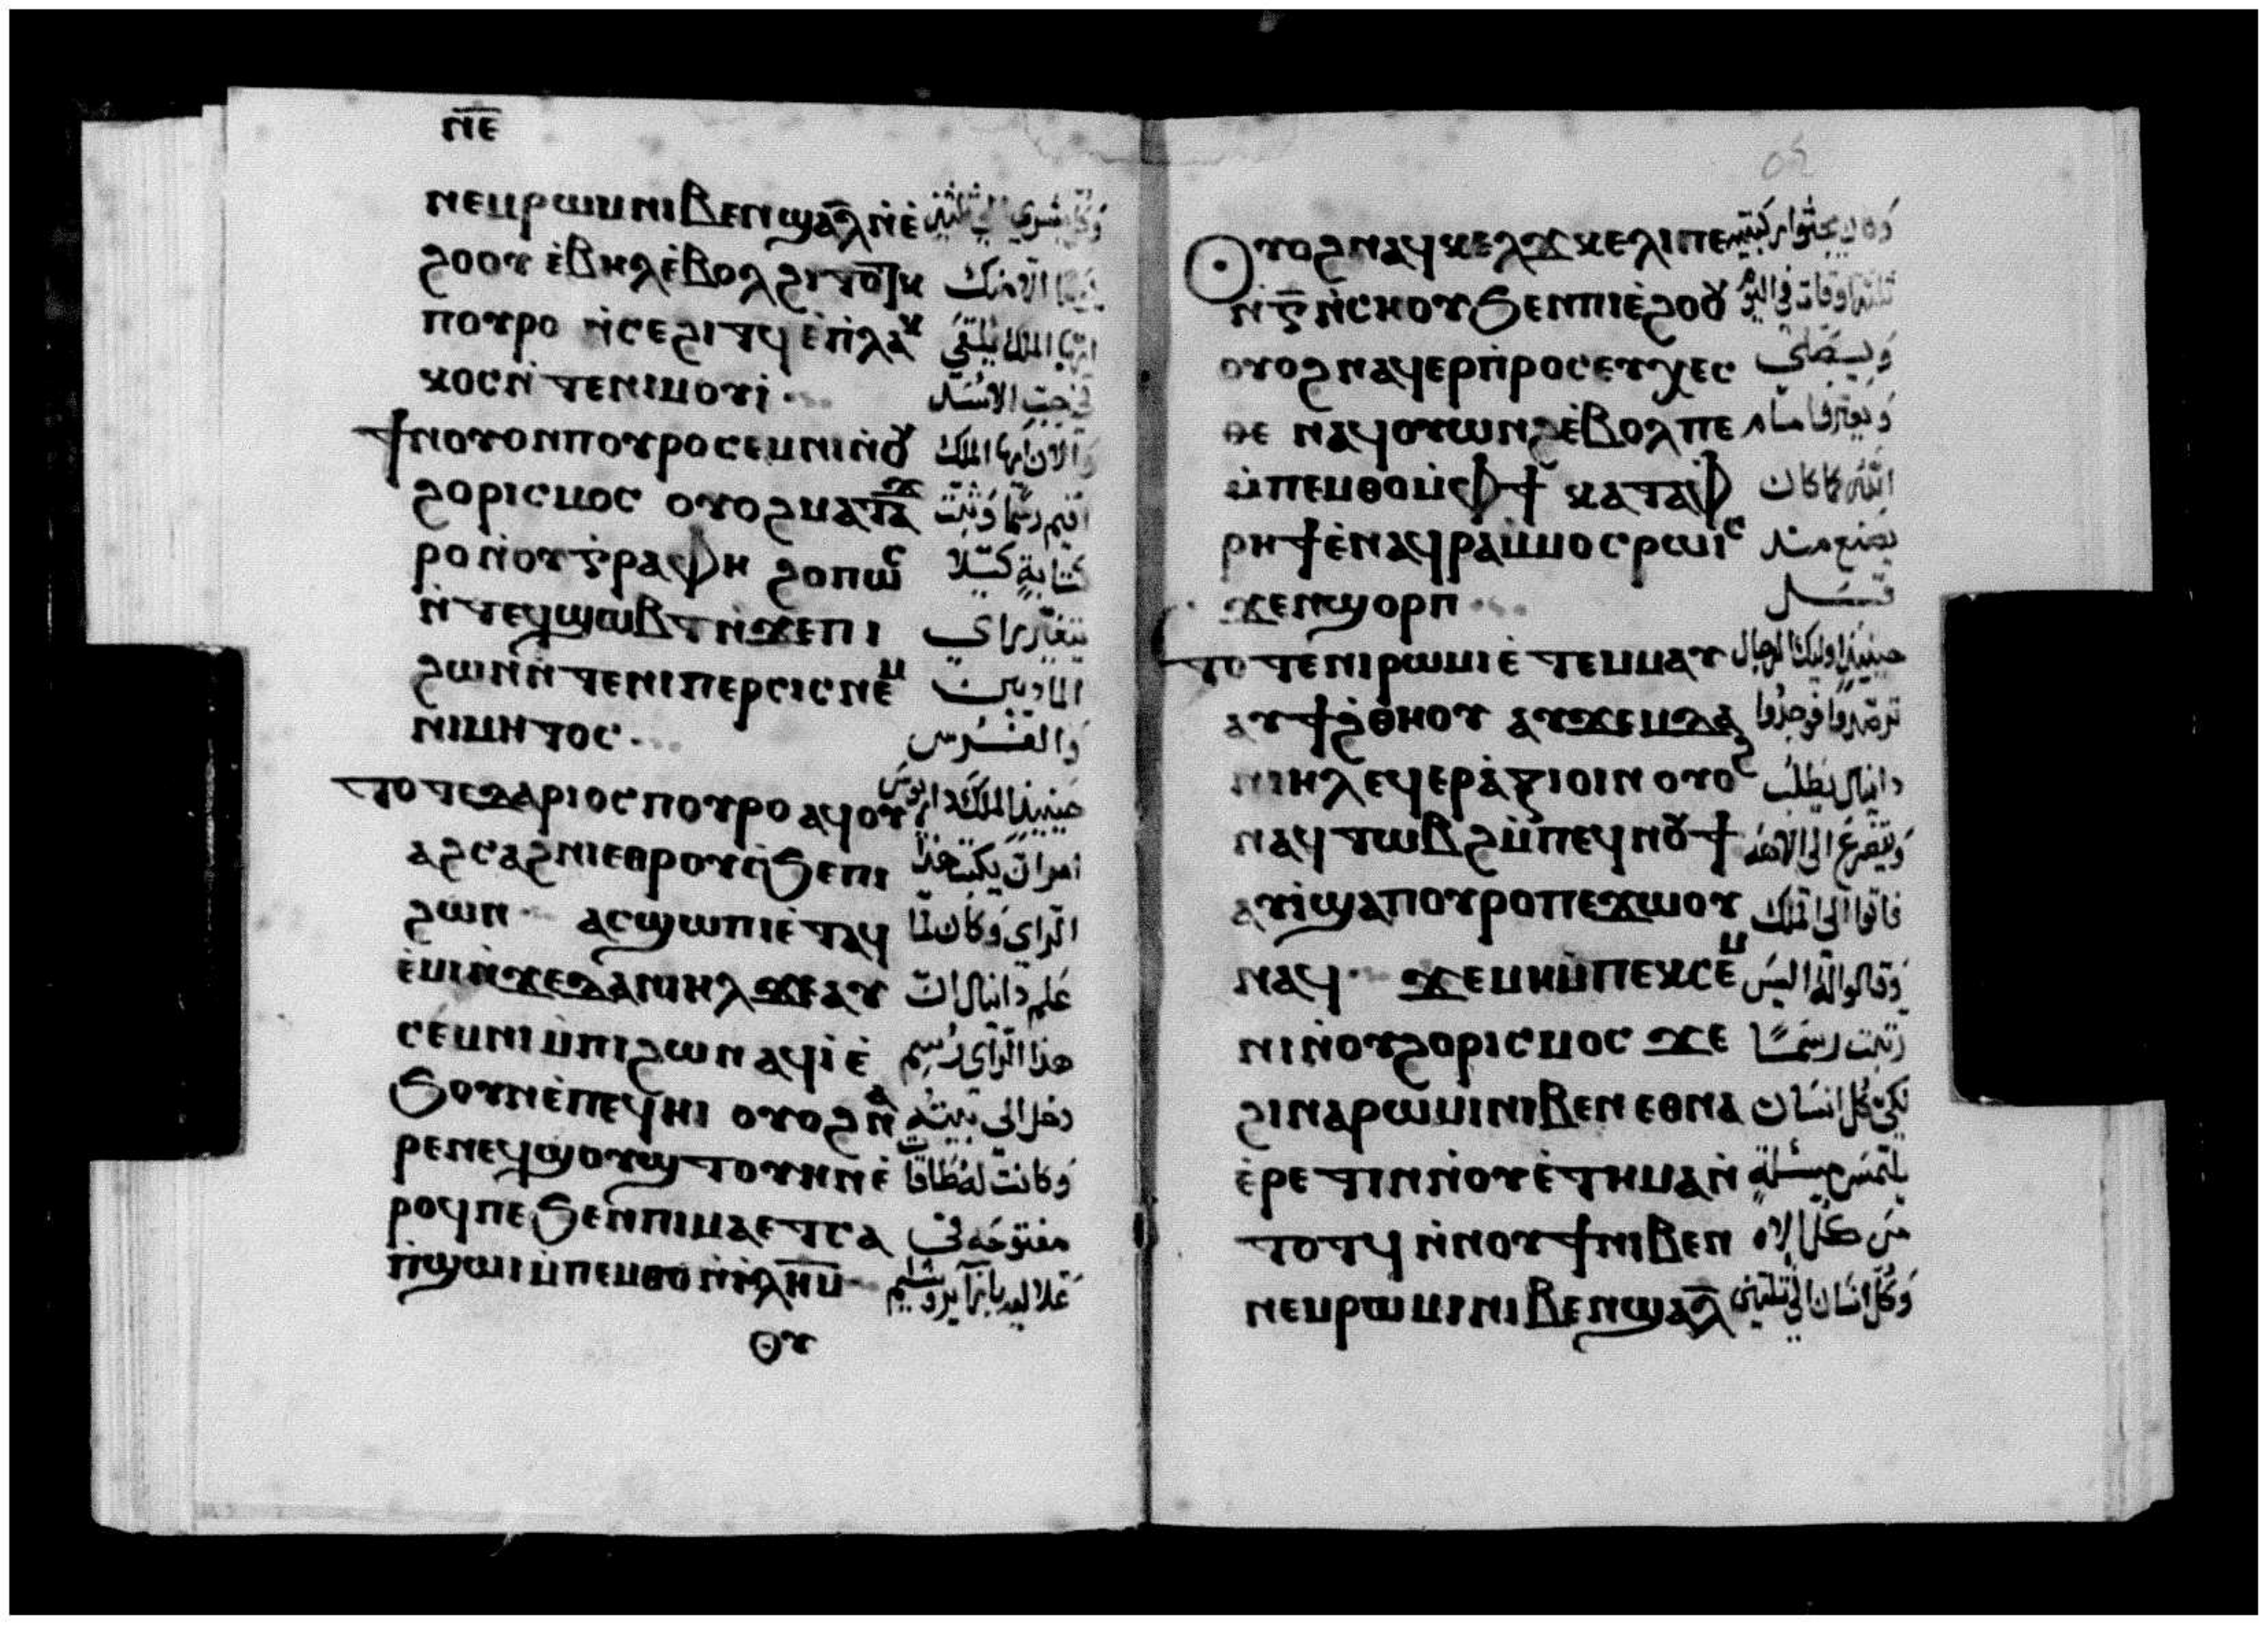 ⲛ̅ⲉ̅
ⲛⲉⲙⲣⲱⲙⲓⲛⲓⲃⲉⲛϣⲁⲗ̅ⲛ̇ⲉ̇
ϩⲟⲟⲩ ⲉ̇ⲃⲏⲗⲉ̇ⲃⲟⲗϩⲓⲧⲟⲧⲕ الا منك
ⲡⲟⲩⲣⲟ ⲛ̇ⲥⲉϩⲓⲧϥⲉ̇ⲡ̇ⲗⲁⲕ ايها الملك يلقى
ⲕⲟⲥⲛ̇ⲧⲉⲛⲓⲙⲟⲩⲓ̇ في جب الاسد
ϯⲛⲟⲩⲟⲛⲡⲟⲩⲣⲟⲥⲉⲙⲛⲓⲛ̇ⲟⲩ والان ايها الملك
ϩⲟⲣⲓⲥⲙⲟⲥ ⲟⲩⲟϩⲙⲁⲧⲁϫ اقيم رسما وثبت
ⲣⲟⲛ̇ⲟⲩⲅ̇ⲣⲁⲫⲏ ϩⲟⲡⲱⲥ كتابة كيلا
ⲛ̇ⲧⲉϥϣⲱⲃⲧⲛ̇ϫⲉⲡⲓ يتغير راي
ϩⲱⲛⲛ̇ⲧⲉⲛⲓⲡⲉⲣⲥⲓⲥⲛⲉⲙ الماديين
ⲛⲓⲙⲏⲧⲟⲥ والفرس
ⲧⲟⲧⲉⲇⲁⲣⲓⲟⲥⲡⲟⲩⲣⲟⲁϥⲟⲩ حينيذ الملك داريوس
ⲁϩⲥⲁϩⲛⲓⲉⲑⲣⲟⲩⲥ̇ϧⲉⲡⲓ امر ان يكتب هذا
ϩⲱⲛ ⲁⲥϣⲱⲡⲓⲉ̇ⲧⲁϥ الراي وكان لما
ⲉ̇ⲙⲓⲛ̇ϫⲉⲇⲁⲛⲓⲏⲗϫⲉⲁⲩ علم دانيال ان
ⲥⲉⲙⲛⲓⲙ̇ⲡⲓϩⲱⲛⲁϥⲓ̇ⲉ̇ هذا الراي رسم
ϧⲟⲩⲛⲉ̇ⲡⲉϥⲏⲓ ⲟⲩⲟϩⲛⲁ دخل الى بيته
ⲣⲉⲛⲉϥϣⲟⲩϣⲧⲟⲩⲏⲛⲉ̇ وكانت له طاقات
ⲣⲟϥⲡⲉϧⲉⲛⲡⲓⲙⲁⲉⲧⲥⲁ مفتوحه في
ⲡ̇ϣⲱⲓⲙ̇ⲡⲉⲙⲑⲟⲛ̇ⲓ̇ⲗⲏ̅ⲙ̅
ⲑⲩ
ⲟⲩⲟϩⲛⲁϥⲕⲉⲗϫⲕⲉⲗⲓⲡⲉ
ⲛ̇ⲅ̅ⲛ̇ⲥⲏⲟⲩϧⲉⲛⲡⲓⲉ̇ϩⲟⲟⲩ ثلثة اوقات في اليوم
ⲟⲩⲟϩⲛⲁϥⲉⲣⲡ̇ⲣⲟⲥⲉⲩⲭⲉⲥ ويصلي
ⲑⲉ ⲛⲁϥⲟⲩⲱⲛϩⲉ̇ⲃⲟⲗⲡⲉ
ⲙ̇ⲡⲉⲙⲑⲟⲙ̇ⲫϯ ⲕⲁⲧⲁⲫ الله كما كان
ⲣⲏϯⲉ̇ⲛⲁϥⲣⲁⲙ̇ⲙⲟⲥⲣⲱⲓⲥ يصنع منذ
ϫⲉⲛϣⲟⲣⲡ قبل
ⲧⲟⲧⲉⲛⲓⲣⲱⲙⲓⲉ̇ⲧⲉⲙⲙⲁⲩ حينيذ اوليك الرجال
ⲁⲩϯϩ̇ⲑⲏⲟⲩ ⲁⲩϫⲉⲙⲇⲁ ترصدوا فوجدوا
ⲛⲓⲏⲗⲉϥⲉⲣⲁ̇ⲝⲓⲟⲓⲛ ⲟⲩⲟϩ دانيال يطلب
ⲛⲁϥⲧⲱⲃϩⲙ̇ⲡⲉϥⲛⲟⲩϯ ويتضرع الى الاهه
ⲁⲩⲓ̇ϣⲁⲡⲟⲩⲣⲟⲡⲉϫⲱⲟⲩ فاتوا الى الملك
ⲛⲁϥ ϫⲉⲙⲏⲙ̇ⲡⲉⲕⲥⲉⲙ وقالوا له اليس
ⲛⲓⲛ̇ⲟⲩϩⲟⲣⲓⲥⲙⲟⲥ ϫⲉ رتبت رسما
ϩⲓⲛⲁⲣⲱⲙⲓⲛⲓⲃⲉⲛⲉⲑⲛⲁ لكي كل انسان
ⲉ̇ⲣⲉⲧⲓⲛⲛ̇ⲟⲩⲉ̇ⲧⲏⲙⲁⲛ̇ يلتمس مسئلة
ⲧⲟⲧϥ ⲛ̇ⲛⲟⲩϯⲛⲓⲃⲉⲛ من كل الاه
ⲛⲉⲙⲣⲱⲙⲓⲛⲓⲃⲉⲛϣⲁⲗ̅ وكل انسان الى ثلثين